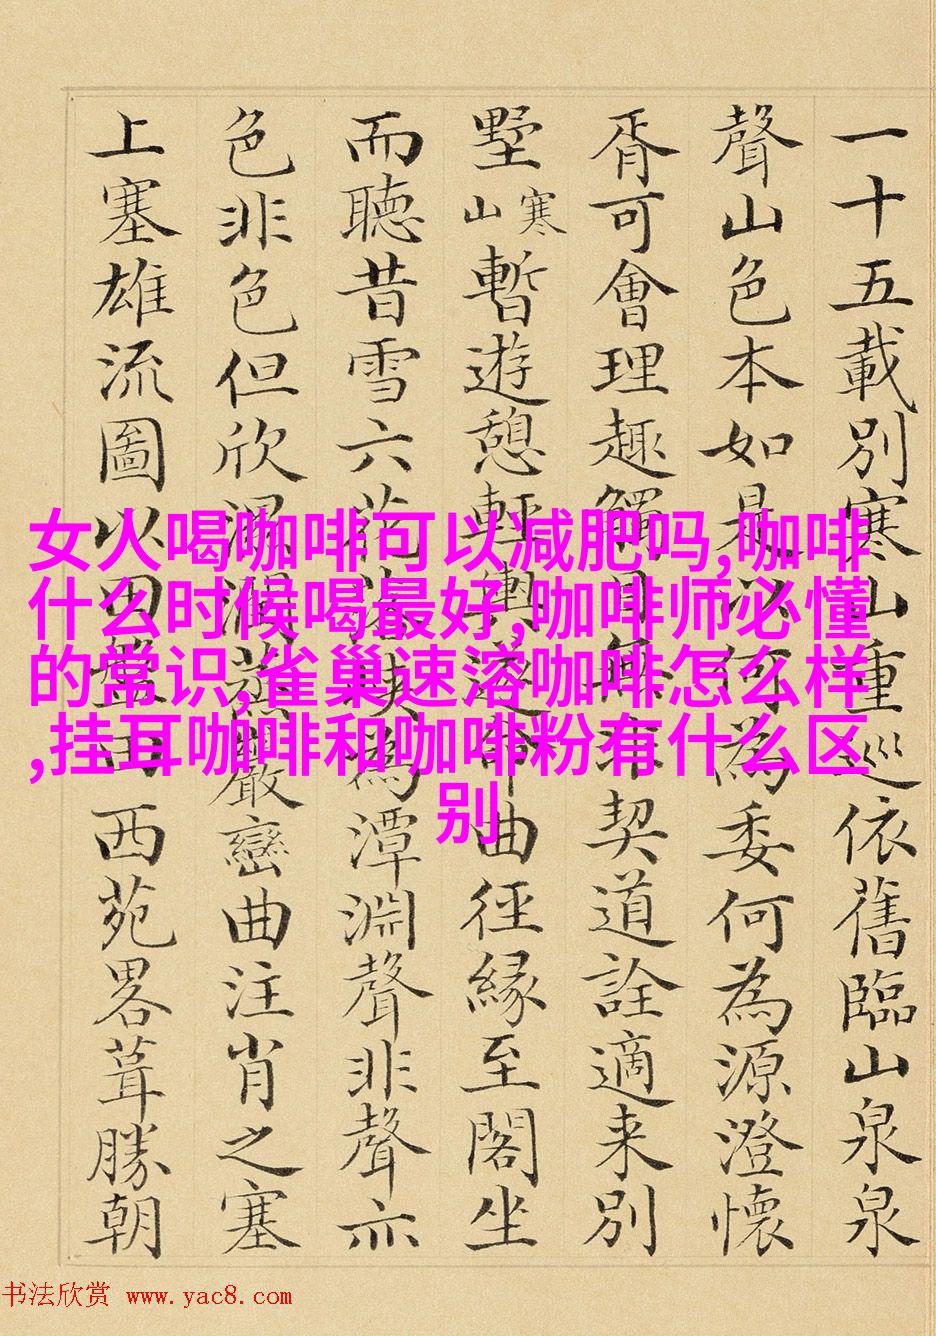 一十五載別寒山重巡依舊臨山泉泉
聲山色本如是以何為委何為源澄懷
胥可會理趣觸目無非契道詮適来別
墅寒山暫遊憩輕輿遂命曲徑緣至閣坐
而聽昔雪六花為潭淵聲非聲亦
色非色但欣濕潤蒸巖巒曲注肖之塞
上塞雄流圖以田盤山西苑畧葺勝朝
女人喝咖啡可以减肥吗,咖啡
什么时候喝最好,咖啡师必懂
的常识,雀巢速溶咖啡怎么样
,挂耳咖啡和咖啡粉有什么区
别
书法欣赏 www.yac8.com